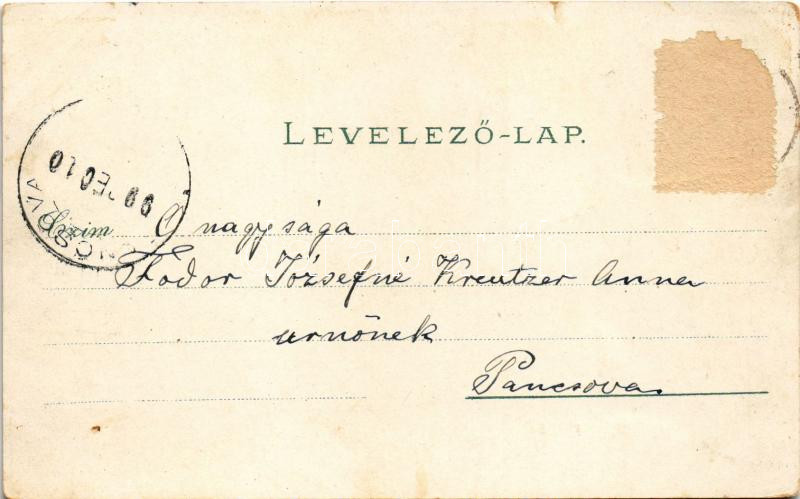 LEVELEZŐ-LAP.
Czím Ő nagysága
Fodor Józsefné Kreutzer Anna
urnőnek
Pancsova